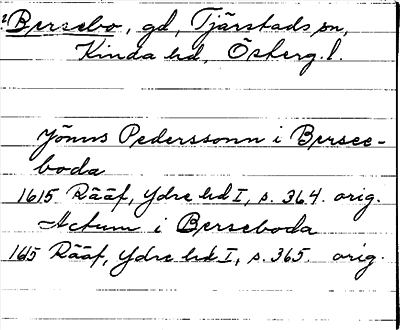 Bersebo, gd, Tjärstads sn,
Kinda hd, Österg. l.
Jönns Pederssonn i Bersee-
boda
1615 Rääf, Ydre hd I, s. 364. orig.
Actum i Berseboda
1615 Rääf, Ydre hd I, s. 365. orig.